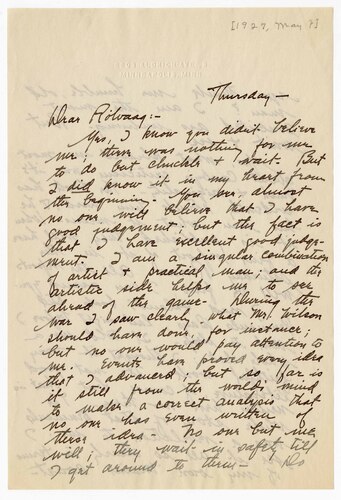 [1927, May ?]
MINNEAPOLIS, MINN.
Thursday—
Dear Rölvaag:-
Yes, I know you didn't believe
me; there was nothing for me
to do but chuckle & wait. But
I did know it in my heart from
the beginning. You see, almost
no one will believe that I have
good judgement; but the fact is
that I have excellent good judge-
ment. I am a singular combination
of artist & practical man; and the
artistic side helps me to see
ahead of the game— During the
war I saw clearly what Mr. Wilson
should have done, for instance;
but no one would pay attention to
me. Events have proved every idea
that I advanced; but so far is
it still from the world's mind
to make a correct analysis that
no one has even written of
these ideas. No one but me
will; they wait in safety till
I get around to them— Do